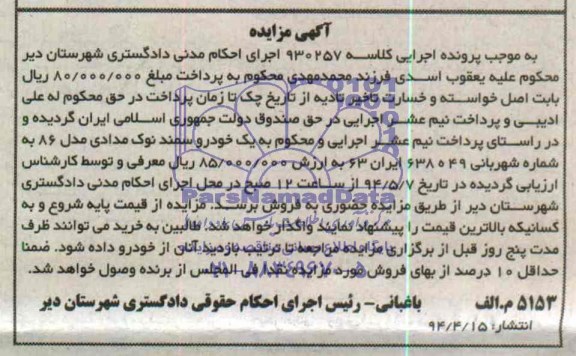 آگهی مزایده
به موجب پرونده اجرایی کلاسه ۹۳۰۲۵۷ اجرای احکام مدنی دادگستری شهرستان دیر
محکوم علیه یعقوب اسدی فرزند محمدمهدی محکوم به پرداخت مبلغ ۸۰/۰۰۰/۰۰۰ ریال
بابت اصل خواسته و خسارت تاخیر تادیه از تاریخ چک تا زمان پرداخت در حق محکوم له علی
ادیبی و پرداخت نیم عشر اجرایی در حق صندوق دولت جمهوری اسلامی ایران گردیده و
در راستای پرداخت نیم عشر اجرایی و محکوم به یک خودرو سمند نوک مدادی مدل ۸۶ به
شماره شهربانی ۴۹ ه ۶۳۸ ایران ۶۳ به ارزش ۸۵/۰۰۰/۰۰۰ ریال معرفی و توسط کارشناس
ارزیابی گردیده در تاریخ ۹۴/۵/۷ از ساعت ۱۲ صبح در محل اجرای احکام مدنی دادگستری
شهرستان دیر از طریق مزایده حضوری به فروش برسد. مزایده از قیمت پایه شروع و به
کسانیکه بالاترین قیمت را پیشنهاد نمایند واگذار خواهد شد. طالبین به خرید می توانند ظرف
مدت پنج روز قبل از برگزاری مزایده مراجعه تا ترتیب بازدید آنان از خودرو داده شود. ضمنا
حداقل ۱۰ درصد از بهای فروش مورد مزایده نقدا فی المجلس از برنده وصول خواهد شد.
۵۱۵۳ م.الف باغبانی- رئیس اجرای احکام حقوقی دادگستری شهرستان دیر
انتشار: ۹۴/۴/۱۵
ParsNamadData